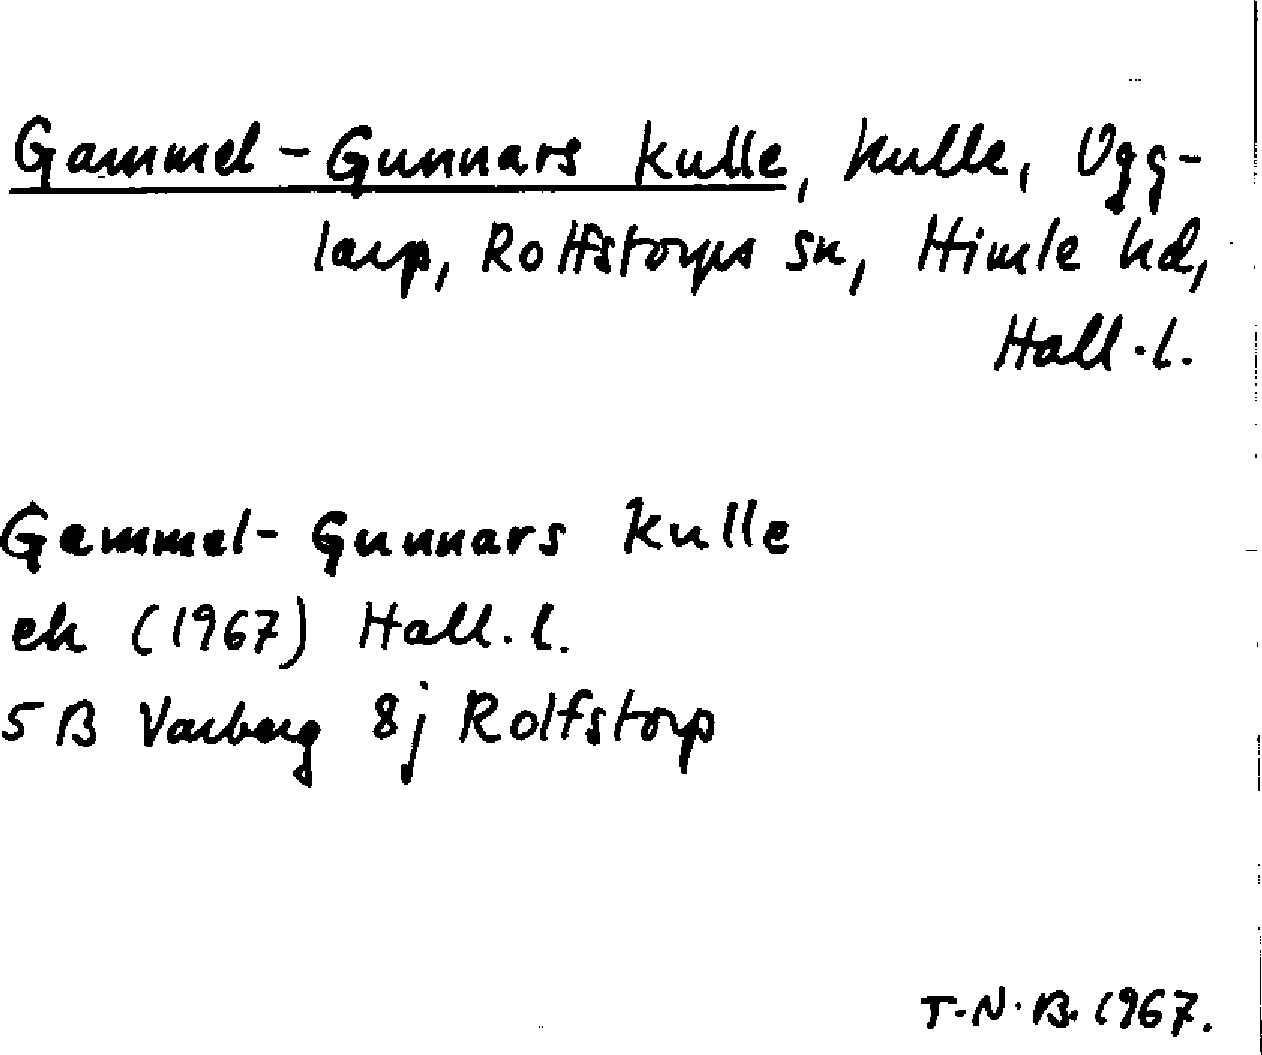 Gammel-Gunnars kulle, kulle, Ugg-
larp, Rolfstorps sn, Himle hd,
Hall.l.
Gammel-Gunnars kulle
ek (1967) Hall.l.
5B Varberg 8j Rolfstorp
T.N.B. 1967.